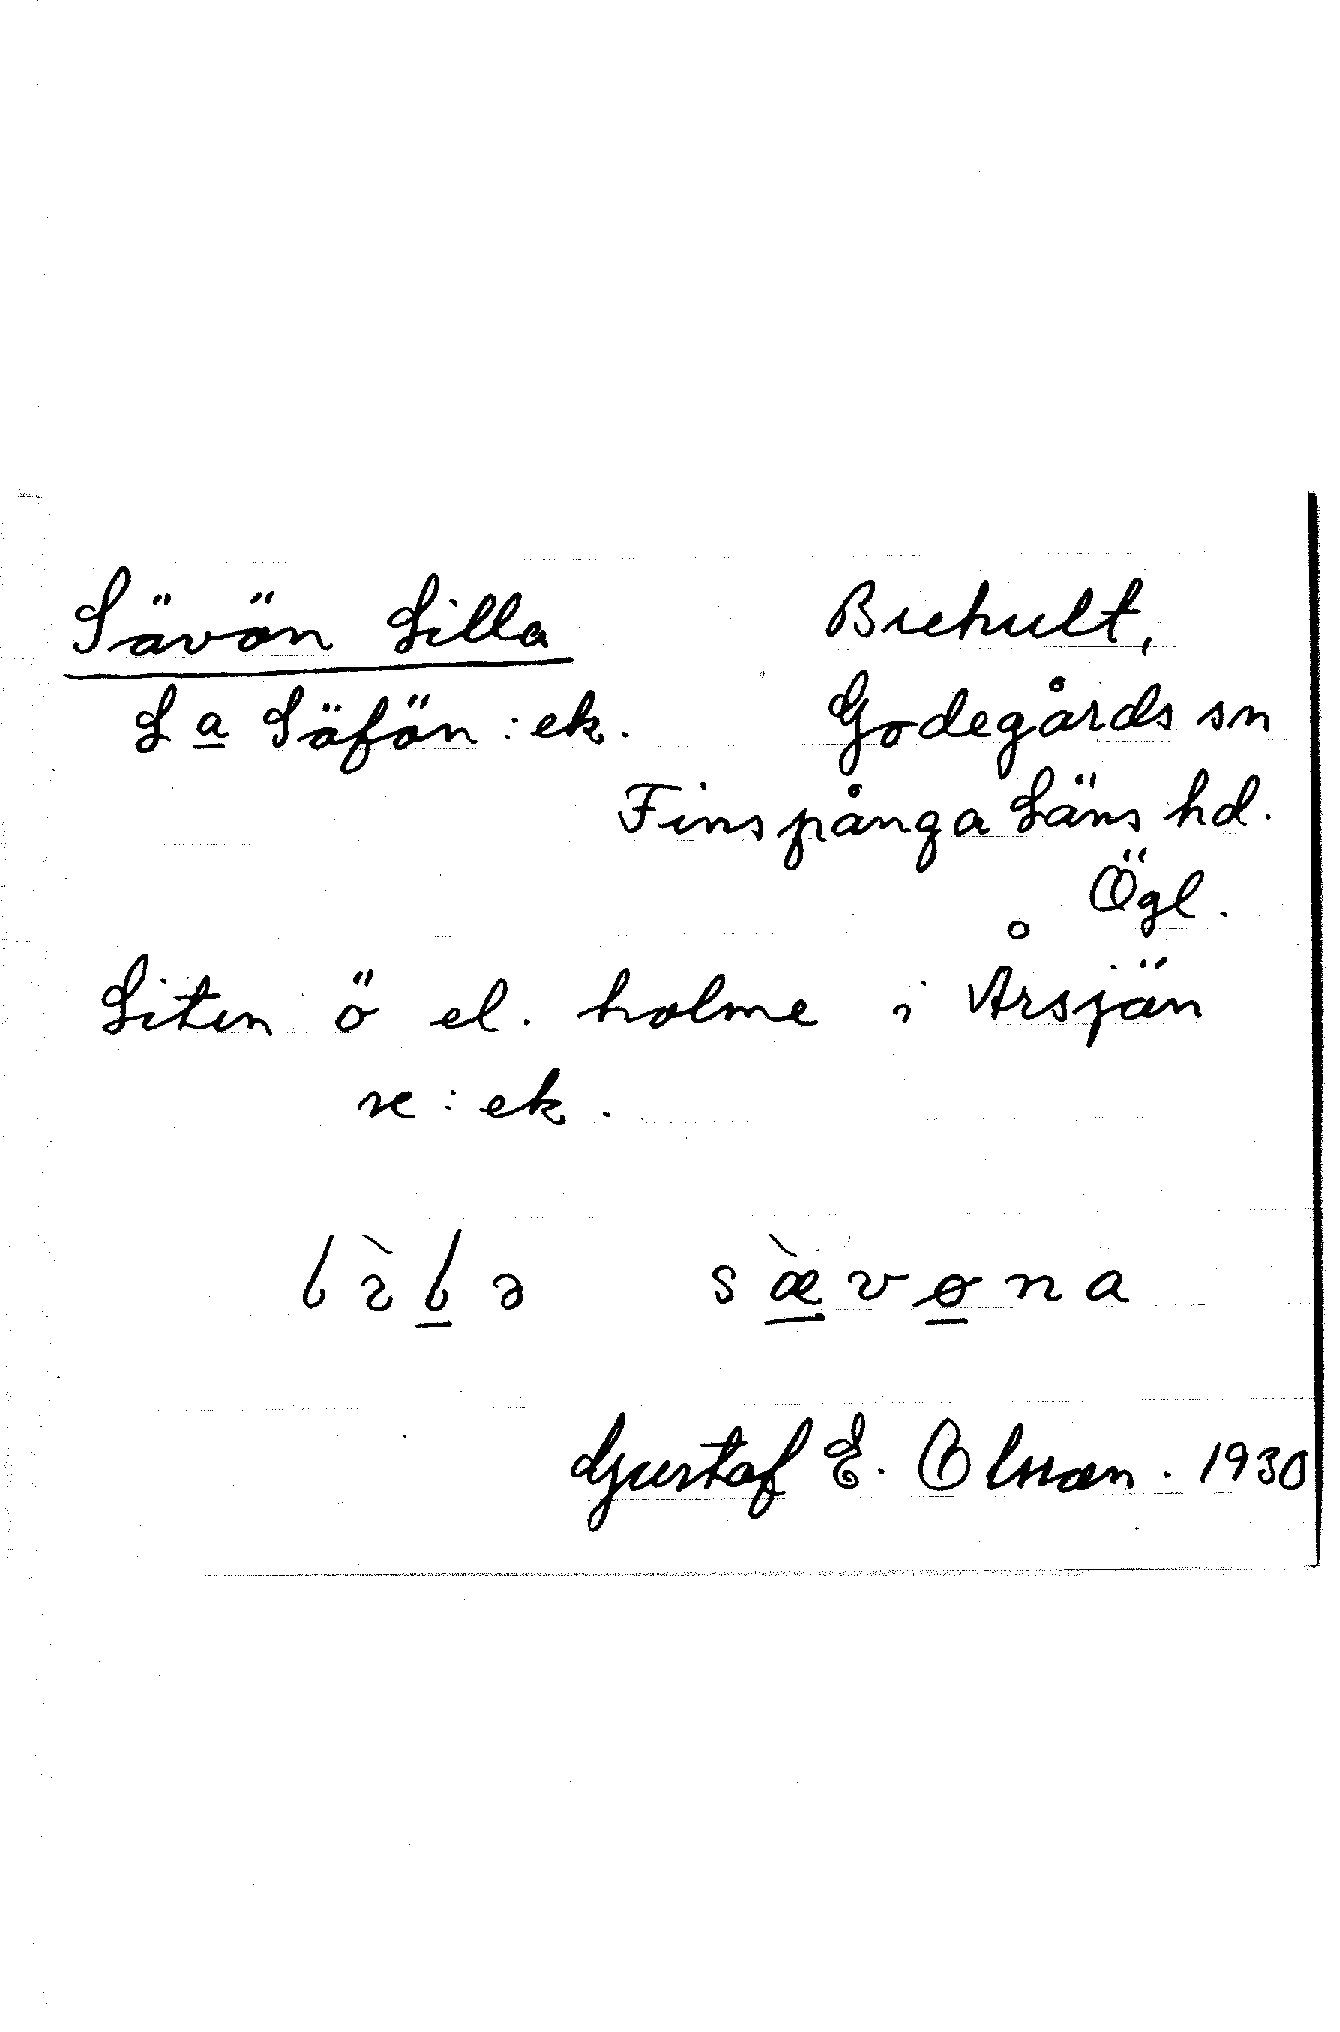 Sävön Lilla
Brehult,
La Säfön : ek.
Godegårds sn
Finspånga Läns hd.
Ögl.
Liten ö el. holme i Årsjön
se : ek.
lìlə sæ̀vøna
Gustaf E. Olsson. 1930